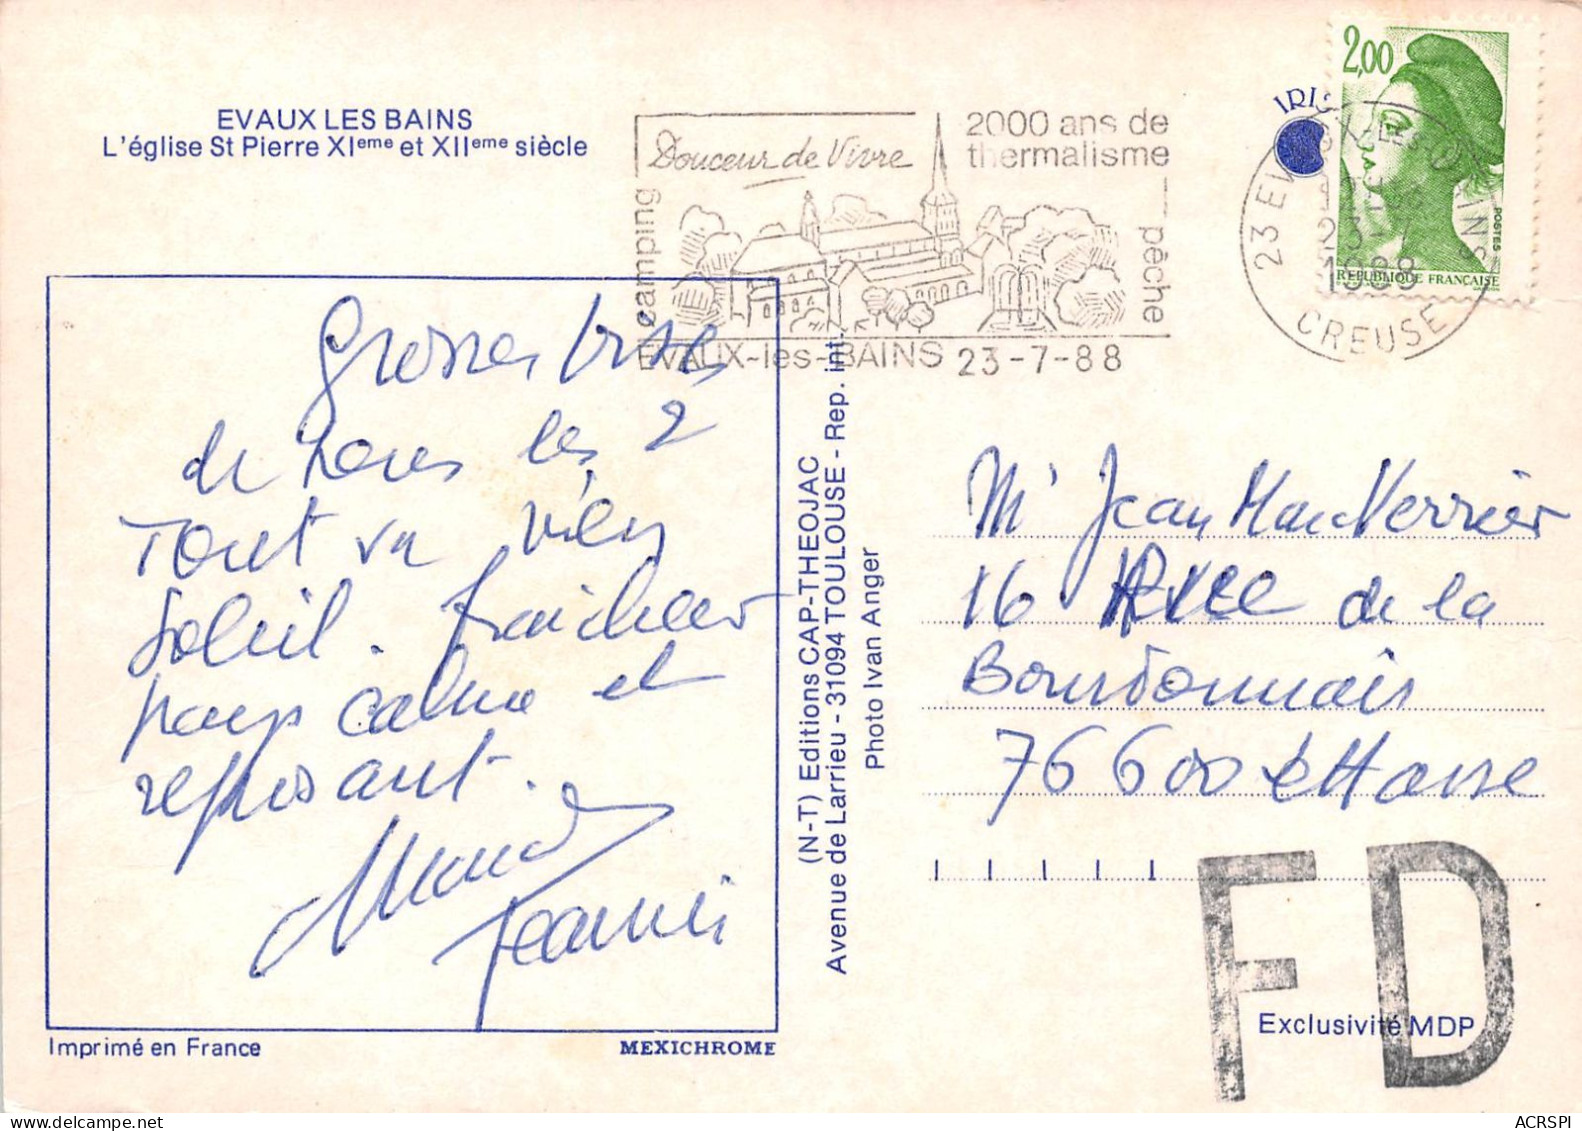 EVAUX LES BAINS
L'église St Pierre XIeme et XIIeme siècle
Douceur de Vivre
2000 ans de
thermalisme
camping
pêche
EVAUX-les-BAINS 23-7-88
IRIS
2,00
POSTES
REPUBLIQUE FRANÇAISE
23 EVAUX-LES-BAINS
23-7
1988
CREUSE
Grosses bises
de nous les 2
Tout va bien
Soleil. fraicheur
pays calme et
reposant.
Jeannis
Imprimé en France
MEXICHROME
(N-T) Editions CAP-THEOJAC
Avenue de Larrieu - 31094 TOULOUSE - Rep. int.
Photo Ivan Anger
Mr Jean Marc Verrier
16 Rue de la
Bourdonnais
76600 le Havre
FD
Exclusivité MDP
ACRSPI